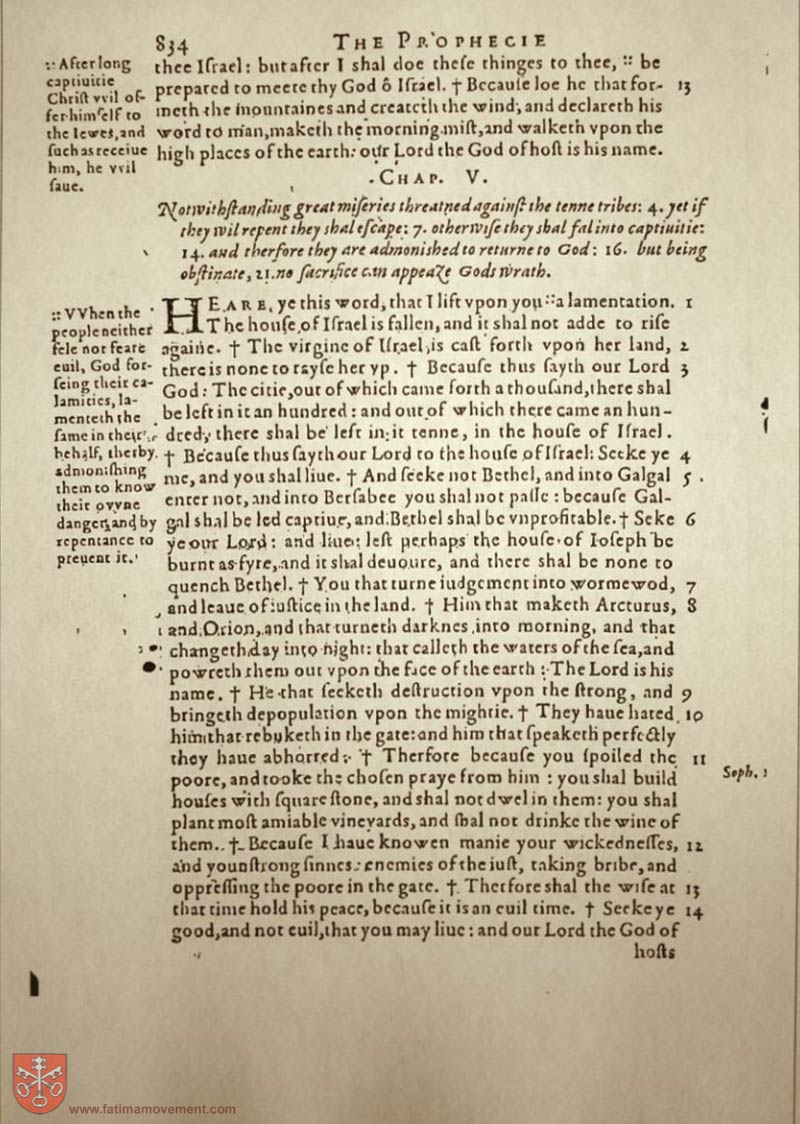 834 THE PROPHECIE
thee Iſrael: but after I shal doe theſe thinges to thee, :: be
prepared to meete thy God ô Iſrael. † Becauſe loe he that for- 13
meth the mountaines and createth the wind, and declareth his
word to man, maketh the morning miſt, and walketh vpon the
high places of the earth: our Lord the God of hoſt is his name.
:: After long
captiuitie
Chriſt vvil of-
fer himſelf to
the Iewes, and
ſuch as receiue
him, he vvil
ſaue.
CHAP. V.
Notwithſtanding great miſeries threatned againſt the tenne tribes: 4. yet if
they wil repent they shal eſcape: 7. otherwiſe they shal fal into captiuitie:
14. and therfore they are admonished to returne to God: 16. but being
obſtinate, 21. no ſacrifice can appeaze Gods wrath.
HEARE, ye this word, that I lift vpon you :: a lamentation. 1
The houſe of Iſrael is fallen, and it shal not adde to riſe
againe. † The virgine of Iſrael is caſt forth vpon her land, 2
there is none to rayſe her vp. † Becauſe thus ſayth our Lord 3
God: The citie, out of which came forth a thouſand, there shal
be left in it an hundred: and out of which there came an hun-
dred, there shal be left in it tenne, in the houſe of Iſrael.
† Becauſe thus ſayth our Lord to the houſe of Iſrael: Seeke ye 4
me, and you shal liue. † And ſeeke not Bethel, and into Galgal 5
enter not, and into Berſabee you shal not paſſe: becauſe Gal-
gal shal be led captiue, and Bethel shal be vnprofitable. † Seke 6
ye our Lord: and liue: leſt perhaps the houſe of Ioſeph be
burnt as fyre, and it shal deuoure, and there shal be none to
quench Bethel. † You that turne iudgement into wormewod, 7
and leaue of iuſtice in the land. † Him that maketh Arcturus, 8
and Orion, and that turneth darknes into morning, and that
changeth day into night: that calleth the waters of the ſea, and
powreth them out vpon the face of the earth: The Lord is his
name. † He that ſeeketh deſtruction vpon the ſtrong, and 9
bringeth depopulation vpon the mightie. † They haue hated 10
him that rebuketh in the gate: and him that ſpeaketh perfectly
they haue abhorred: † Therfore becauſe you ſpoiled the 11
poore, and tooke the choſen praye from him: you shal build
houſes with ſquare ſtone, and shal not dwel in them: you shal
plant moſt amiable vineyards, and shal not drinke the wine of
them. † Becauſe I haue knowen manie your wickedneſſes, 12
and your ſtrong ſinnes: enemies of the iuſt, taking bribe, and
oppreſſing the poore in the gate. † Therfore shal the wiſe at 13
that time hold his peace, becauſe it is an euil time. † Seeke ye 14
good, and not euil, that you may liue: and our Lord the God of
hoſts
:: VVhen the
people neither
fele nor feare
euil, God for-
ſeing their ca-
lamities, la-
menteth the
ſame in their
behalf, therby
admoniſhing
them to know
their ovvne
danger, and by
repentance to
preuent it.
Soph. 1
www.fatimamovement.com